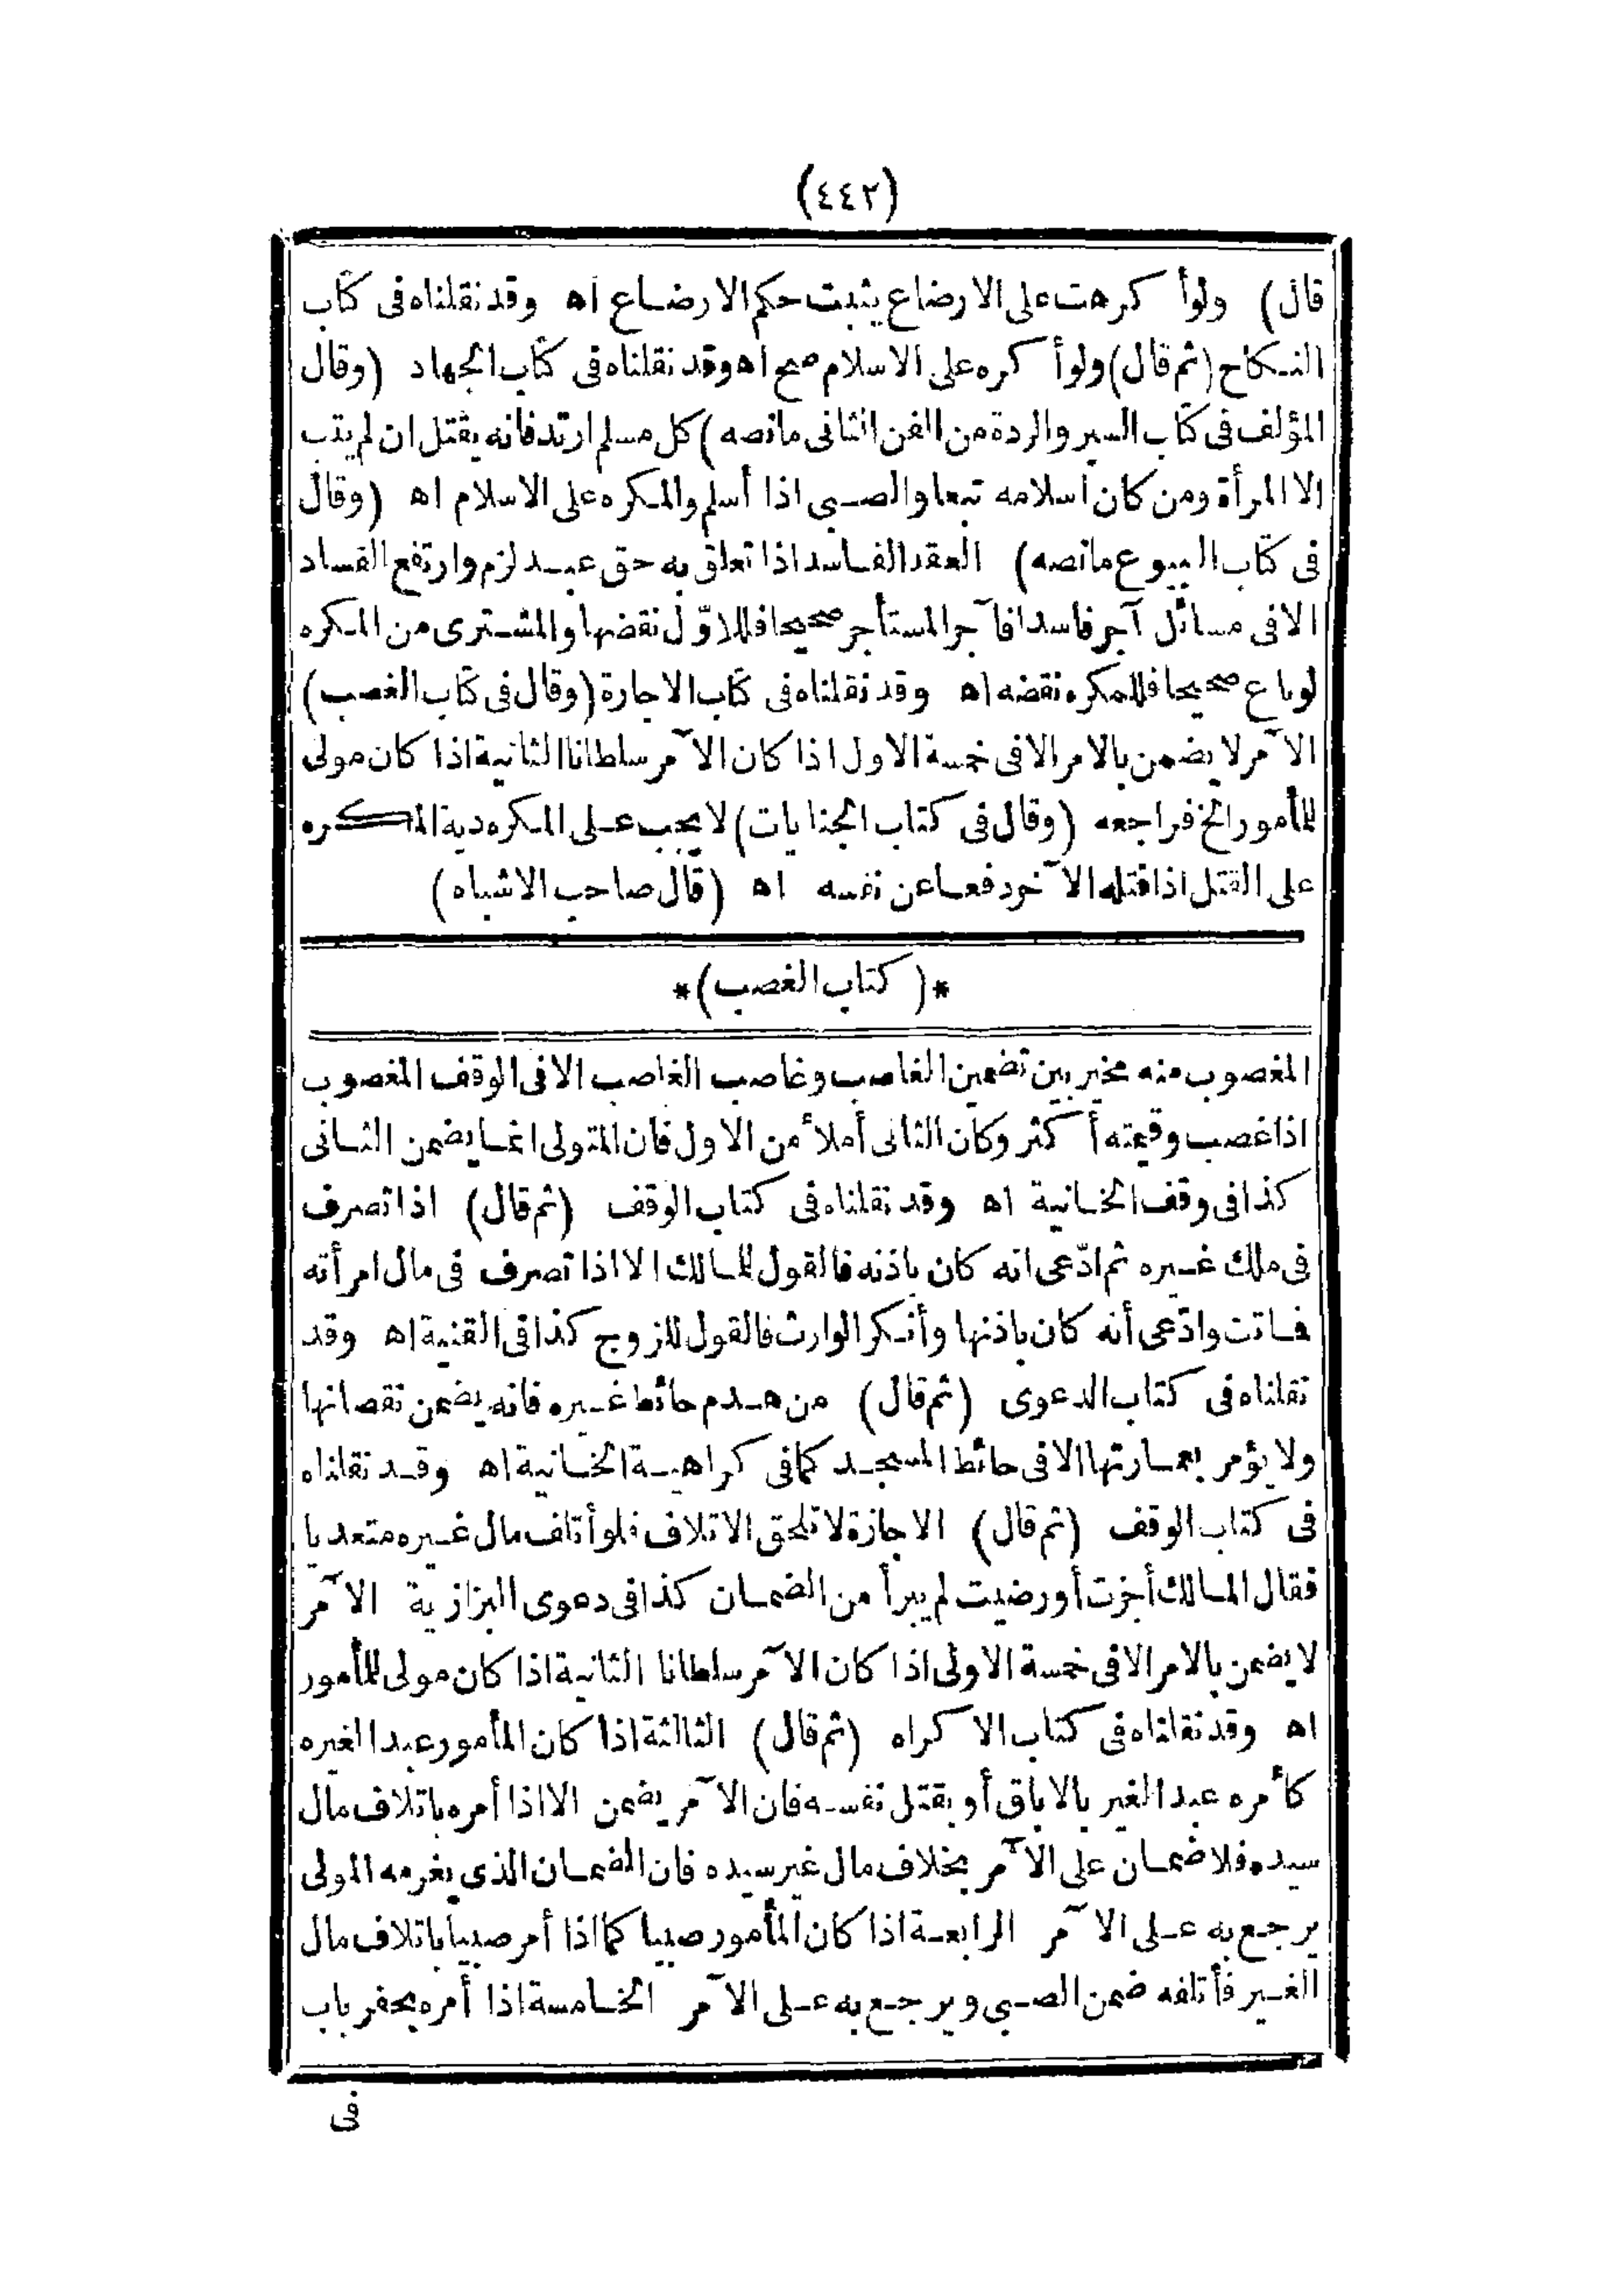 (٤٤٢)
قال) ولو أكرهت على الارضاع يثبت حكم الارضاع اه وقد نقلناه فى كتاب
النكاح (ثم قال) ولو أكره على الاسلام صح اه وقد نقلناه فى كتاب الجهاد (وقال
المؤلف فى كتاب السير والردة من الفن الثانى مانصه) كل مسلم ارتد فانه يقتل ان لم يتب
الا المرأة ومن كان اسلامه تبعا والصبى اذا أسلم والمكره على الاسلام اه (وقال
فى كتاب البيوع مانصه) العقد الفاسد اذا تعلق به حق عبد لزم وارتفع الفساد
الا فى مسائل آجر فاسدا فآجر المستأجر صحيحا فللاوّل نقضها والمشترى من المكره
لو باع صحيحا فللمكره نقضه اه وقد نقلناه فى كتاب الاجارة (وقال فى كتاب الغصب)
الآمر لا يضمن بالامر الا فى خمسة الاول اذا كان الآمر سلطانا الثانية اذا كان مولى
للمأمور الخ فراجعه (وقال فى كتاب الجنايات) لا يجب على المكره دية المكره
على القتل اذا قتله الآخر دفعا عن نفسه اه (قال صاحب الاشباه)
*(كتاب الغصب)*
المغصوب منه مخير بين تضمين الغاصب وغاصب الغاصب الا فى الوقف المغصوب
اذا غصب وقيمته أكثر وكان الثانى أملأ من الاول فان المتولى انما يضمن الثانى
كذا فى وقف الخانية اه وقد نقلناه فى كتاب الوقف (ثم قال) اذا تصرف
فى ملك غيره ثم ادّعى انه كان باذنه فالقول للمالك الا اذا تصرف فى مال امرأته
فماتت وادّعى أنه كان باذنها وأنكر الوارث فالقول للزوج كذا فى القنية اه وقد
نقلناه فى كتاب الدعوى (ثم قال) من هدم حائط غيره فانه يضمن نقصانها
ولا يؤمر بعمارتها الا فى حائط المسجد كما فى كراهية الخانية اه وقد نقلناه
فى كتاب الوقف (ثم قال) الاجازة لا تلحق الاتلاف فلو أتلف مال غيره متعديا
فقال المالك أجزت أو رضيت لم يبرأ من الضمان كذا فى دعوى البزازية الآمر
لا يضمن بالامر الا فى خمسة الاولى اذا كان الآمر سلطانا الثانية اذا كان مولى للمأمور
اه وقد نقلناه فى كتاب الاكراه (ثم قال) الثالثة اذا كان المأمور عبدا لغيره
كأمره عبد الغير بالاباق أو بقتل نفسه فان الآمر يضمن الا اذا أمره باتلاف مال
سيده فلا ضمان على الآمر بخلاف مال غير سيده فان الضمان الذى يغرمه المولى
يرجع به على الآمر الرابعة اذا كان المأمور صبيا كما اذا أمر صبيا باتلاف مال
الغير فأتلفه ضمن الصبى ويرجع به على الآمر الخامسة اذا أمره بحفر باب
فى